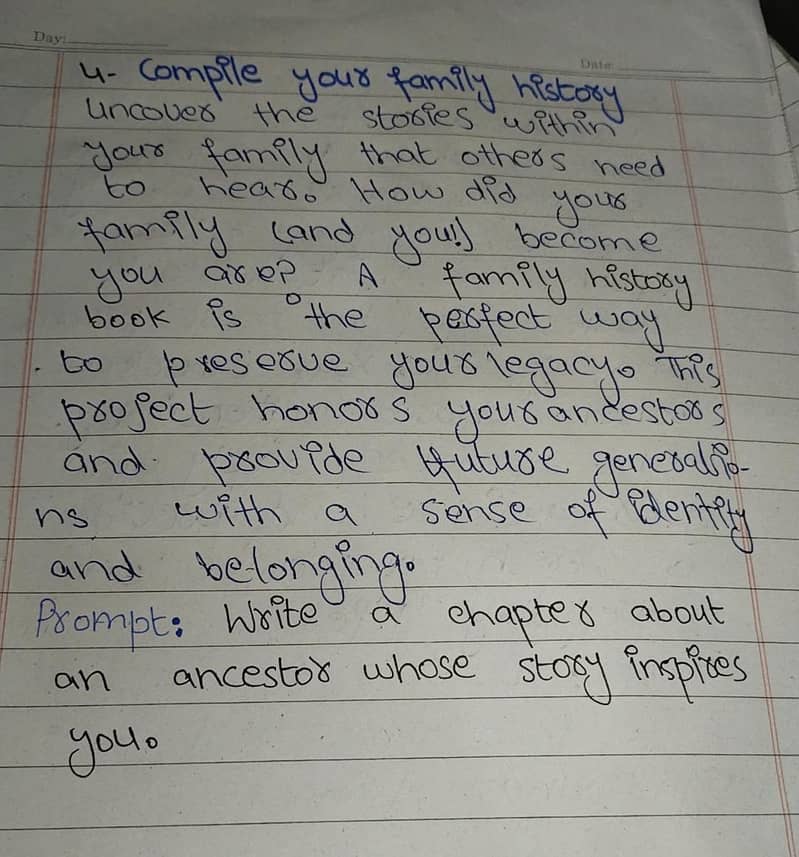 Day:
Date:
4- Compile your family history
uncover the stories within
your family that others need
to hear. How did your
family (and you!) become
you are? A family history
book is the perfect way
to preserve your legacy. This
project honors your ancestors
and provide future generatio-
ns with a sense of identity
and belonging.
Prompt: Write a chapter about
an ancestor whose story inspires
you.